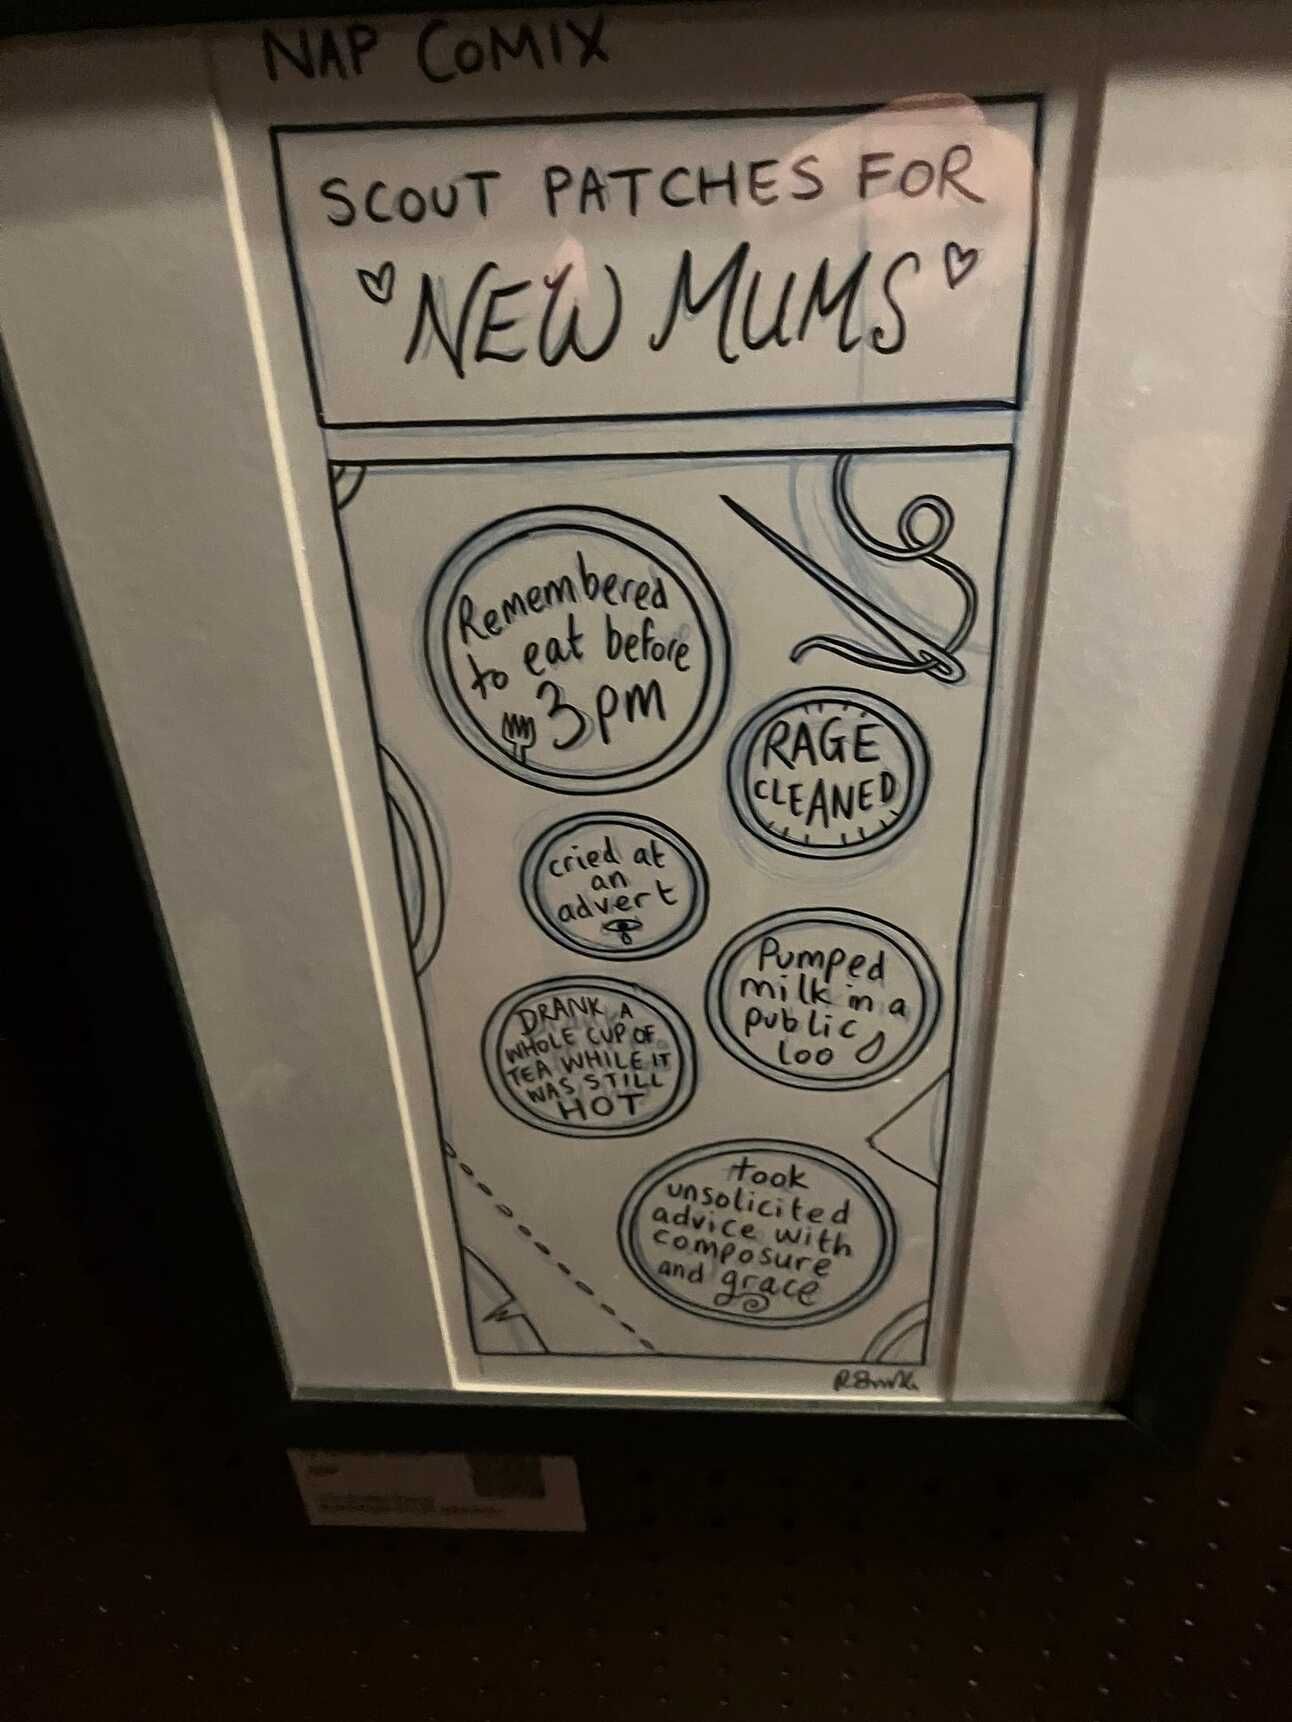 NAP COMIX
SCOUT PATCHES FOR
NEW MUMS
Remembered
to eat before
3pm
RAGE
CLEANED
cried at
an
advert
Pumped
milk in a
public
loo
DRANK A
WHOLE CUP OF
TEA WHILE IT
WAS STILL
HOT
took
unsolicited
advice with
composure
and grace